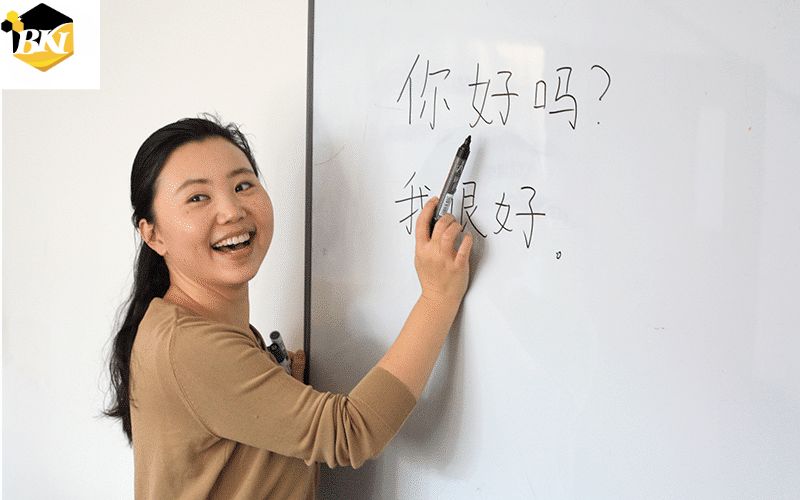 BKI
你好吗?
我很好。